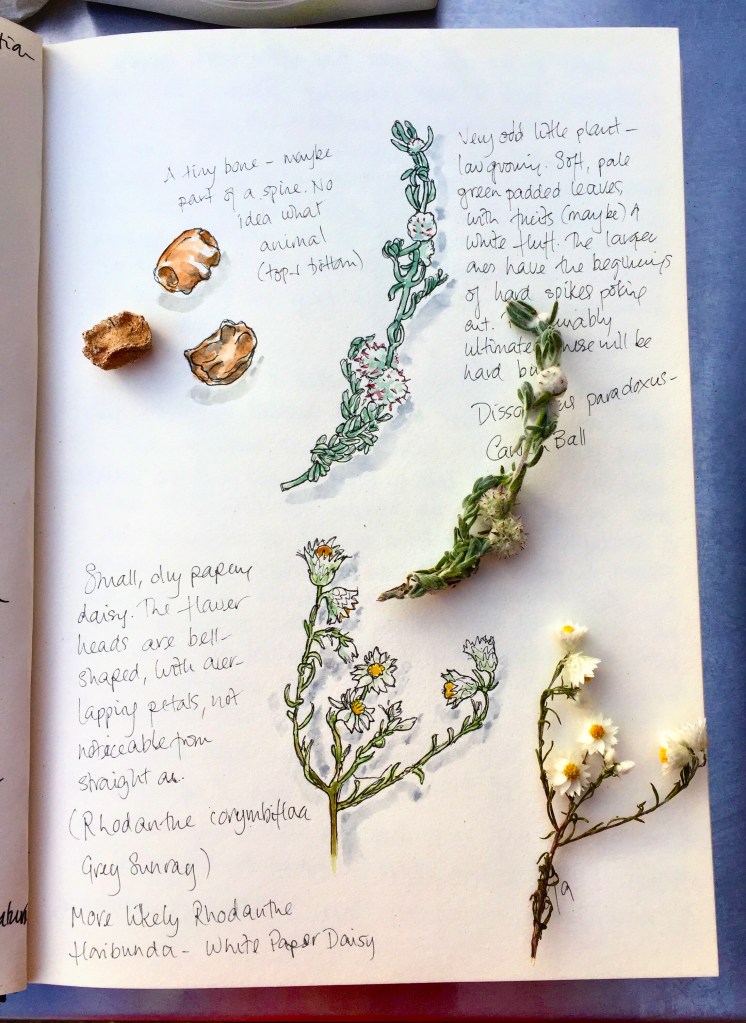 tian
A tiny bone - maybe
part of a spine. No
idea what
animal
(top & bottom)
Very odd little plant -
low growing. Soft, pale
green padded leaves,
with fruits (maybe) of
white fluff. The larger
ones have the beginnings
of hard spikes poking
out.
ultimate will be
hard
paradoxus -
Ball
Small, dry papery
daisy. The flower
heads are bell-
shaped, with over-
lapping petals, not
noticeable from
straight on.
(Rhodanthe corymbiflora
Grey Sunray)
More likely Rhodanthe
floribunda - White Paper Daisy